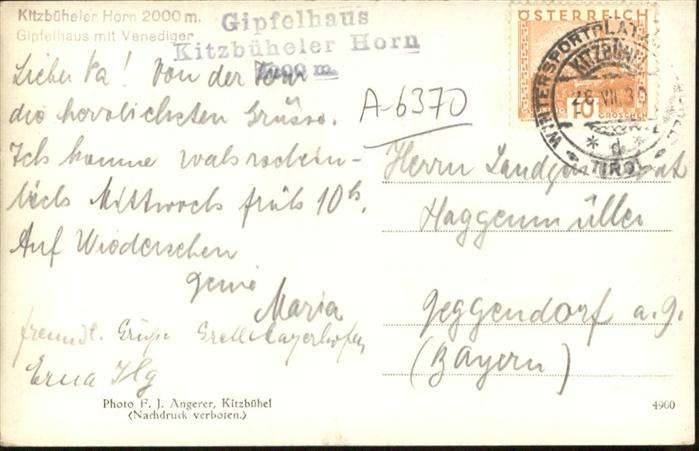 Kitzbüheler Horn 2000 m.
Gipfelhaus mit Venediger
Gipfelhaus
Kitzbüheler Horn
2000 m
ÖSTERREICH
10
GROSCHEN
WINTERSPORTPLATZ
KITZBÜHEL
26. VII. 30
* d *
TIROL
A-6370
Lieber Pa! Von der Tour
die herrlichsten Grüsse.
Ich komme wahrschein-
lich Mittwoch früh 10 h.
Auf Wiedersehen
Deine
Maria
freundl. Grüße Gretl Mayerhofer
Erna Ilg
Herrn Landgerichtsrat
Haggenmüller
Deggendorf a. D.
(Bayern)
Photo F. J. Angerer, Kitzbühel
(Nachdruck verboten.)
4960